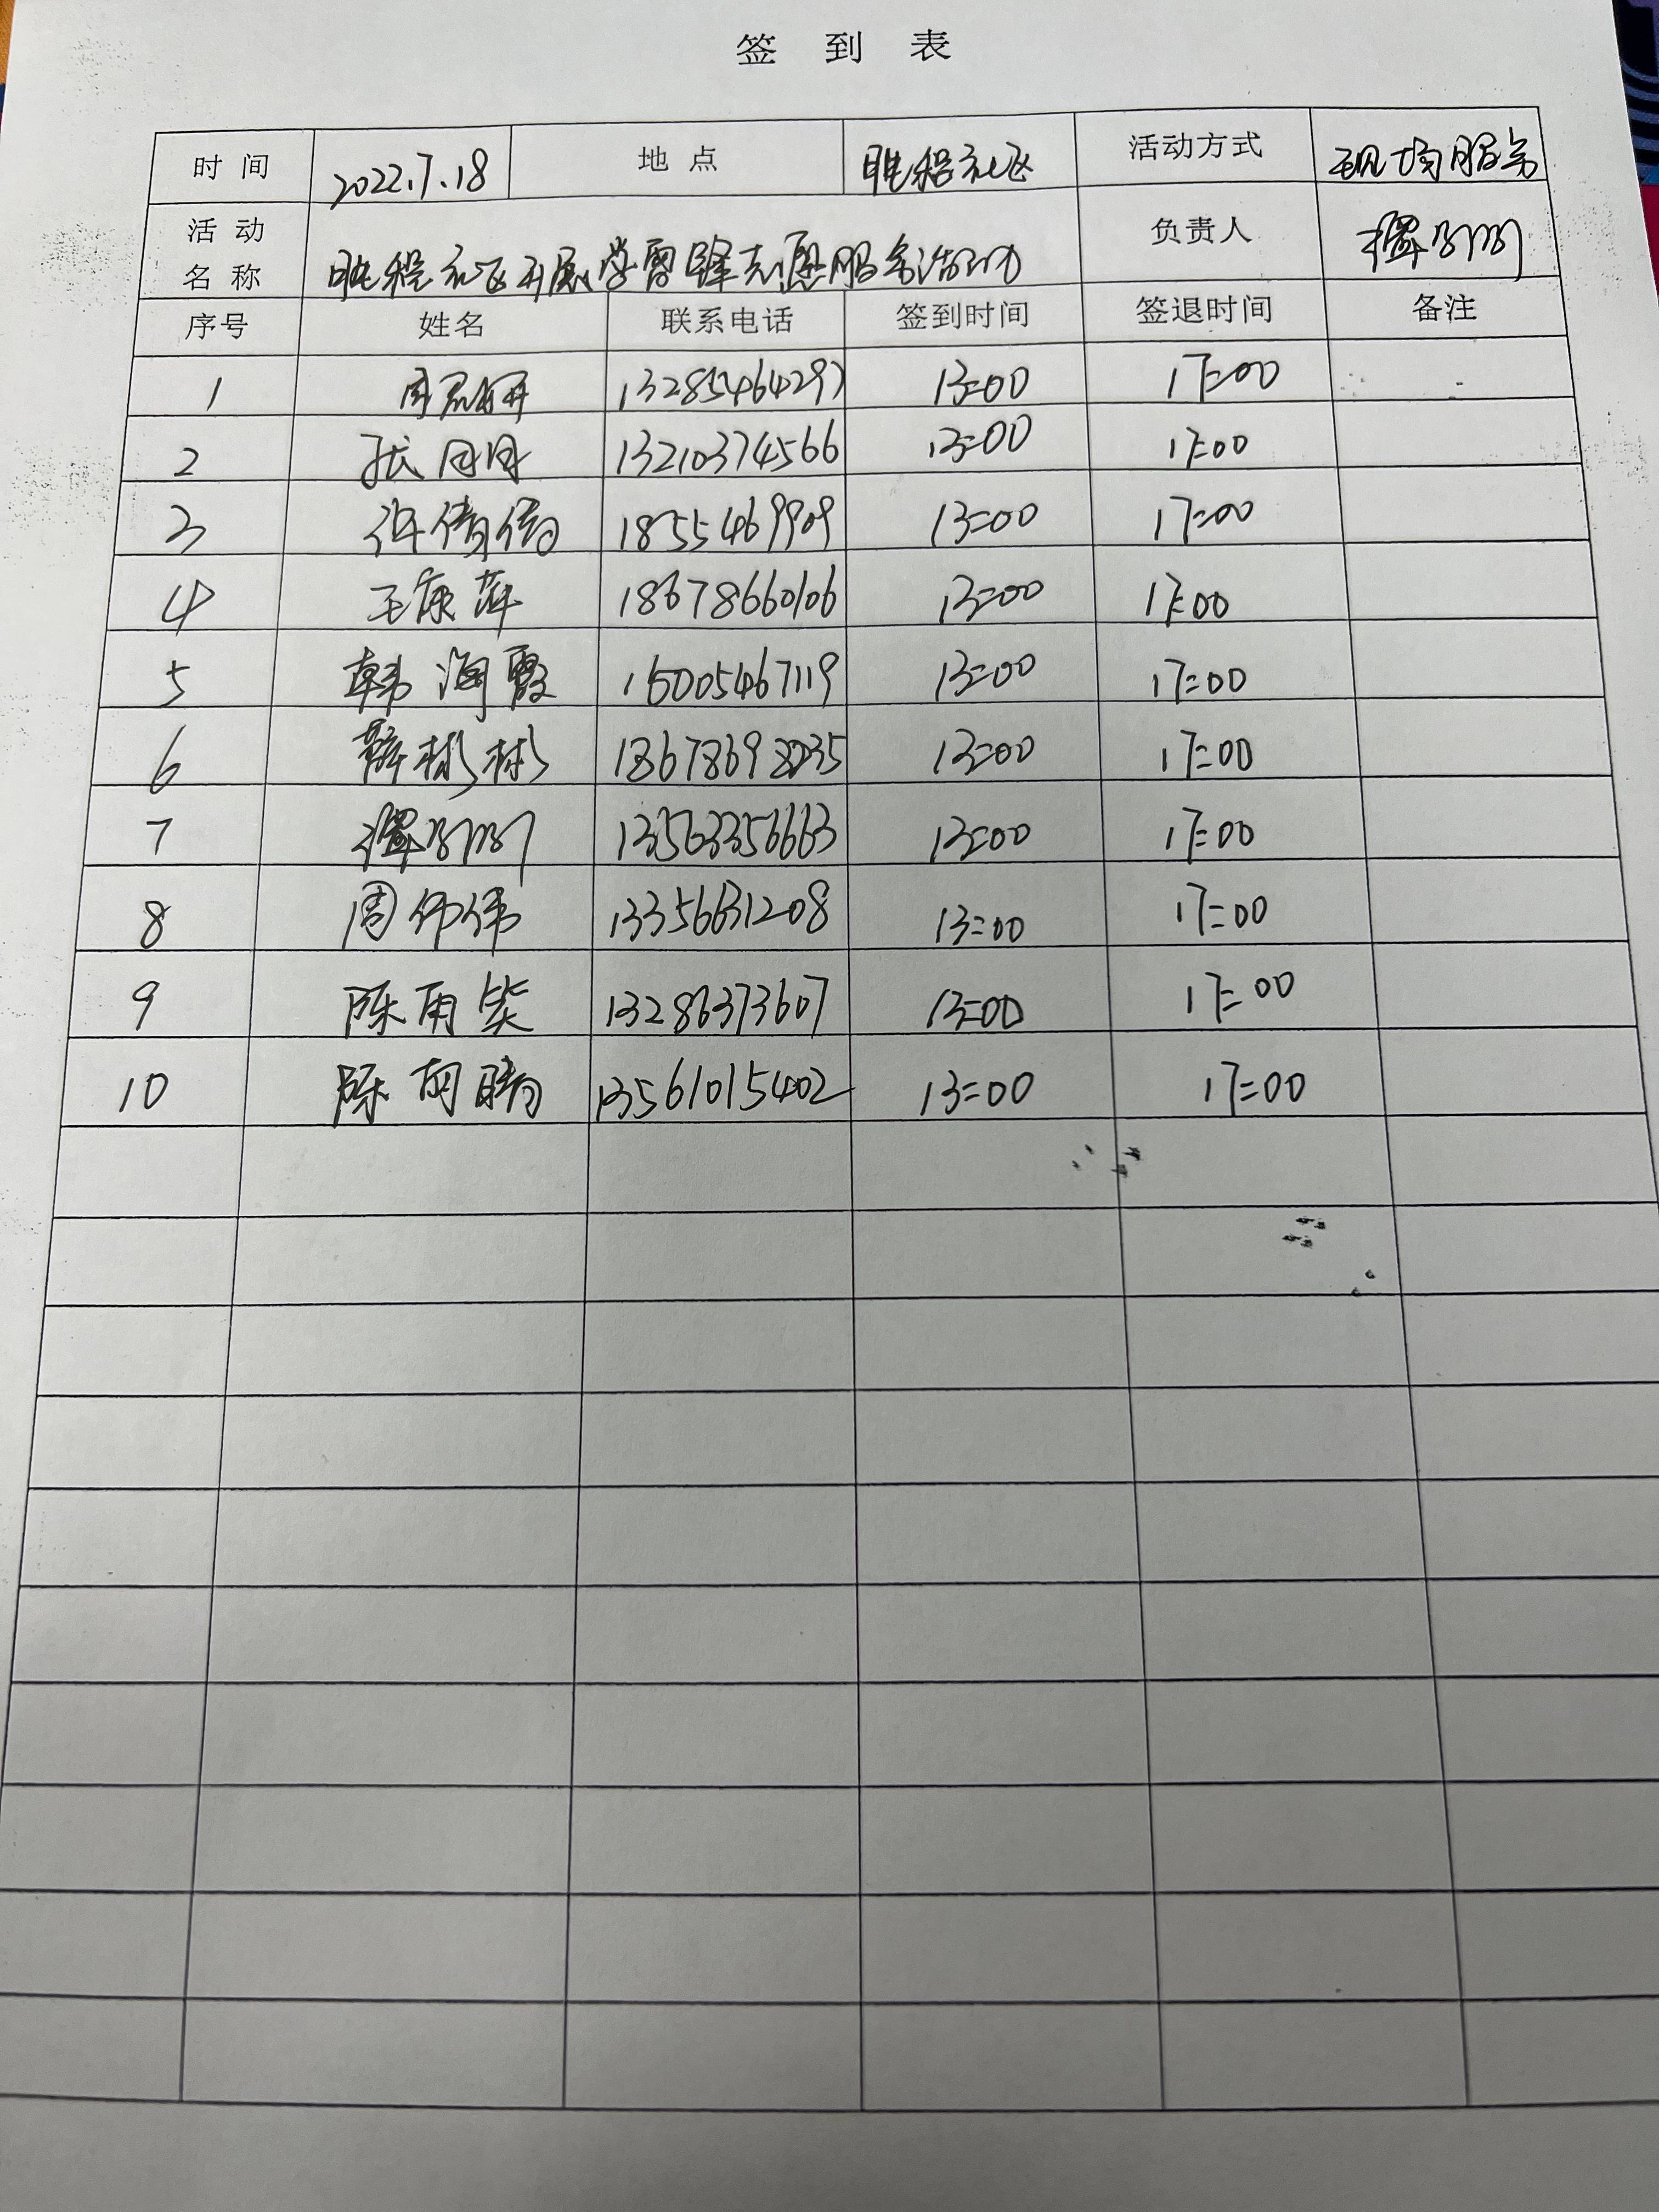 签 到 表
时 间 2022.7.18 地 点 胜程社区 活动方式 现场服务
活 动 名 称 胜程社区开展学雷锋志愿服务活动 负责人
序号 姓名 联系电话 签到时间 签退时间 备注
1 13285464297 13:00 17:00
2 张月月 13210374566 13:00 17:00
3 许倩倩 1855469909 13:00 17:00
4 王康萍 18678660106 13:00 17:00
5 韩海霞 15005467119 13:00 17:00
6 薛彬彬 13:00 17:00
7 13563356663 13:00 17:00
8 周伟伟 13356631208 13:00 17:00
9 陈雨笑 13286373607 13:00 17:00
10 陈 13561015402 13:00 17:00